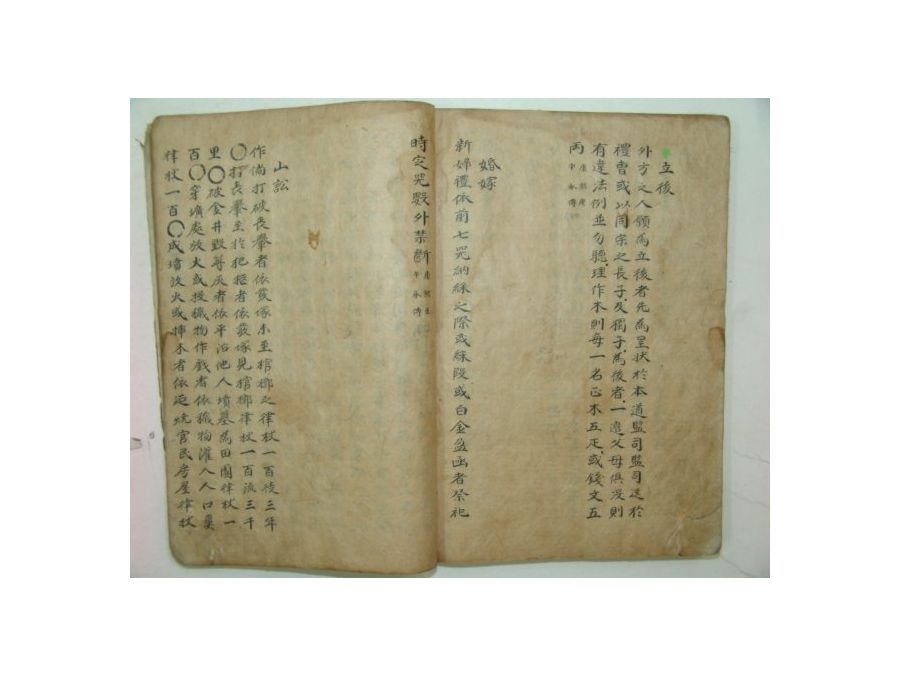 立後
外方之人願為立後者先為呈狀於本道監司監司送於
禮曹或以同宗之長子及獨子為後者一邊父母俱沒則
有違法例並勿聽理作木則每一名正木五疋或錢文五
兩
婚嫁
新婦禮依前七器納綵之際或綵段或白金盆函者祭祀
時定器數外禁斷
山訟
作倘打破喪轝者依發塚未至棺槨之律杖一百徒三年
○打喪轝至於犯柩者依發塚見棺槨律杖一百流三千
里○破金井毀尊灰者依平治他人墳墓為田園律杖一
百○穿壙處放火或投穢物作戱者依穢物灌入人口糞
律杖一百○成墳放火或揷木者依延燒官民房屋律杖